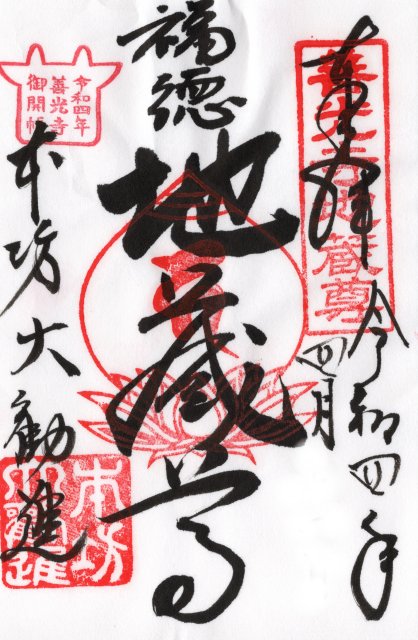 奉拝
地蔵尊
令和四年
四月
福徳
地蔵尊
令和四年
善光寺
御開帳
本坊大勧進
本坊
大勧進